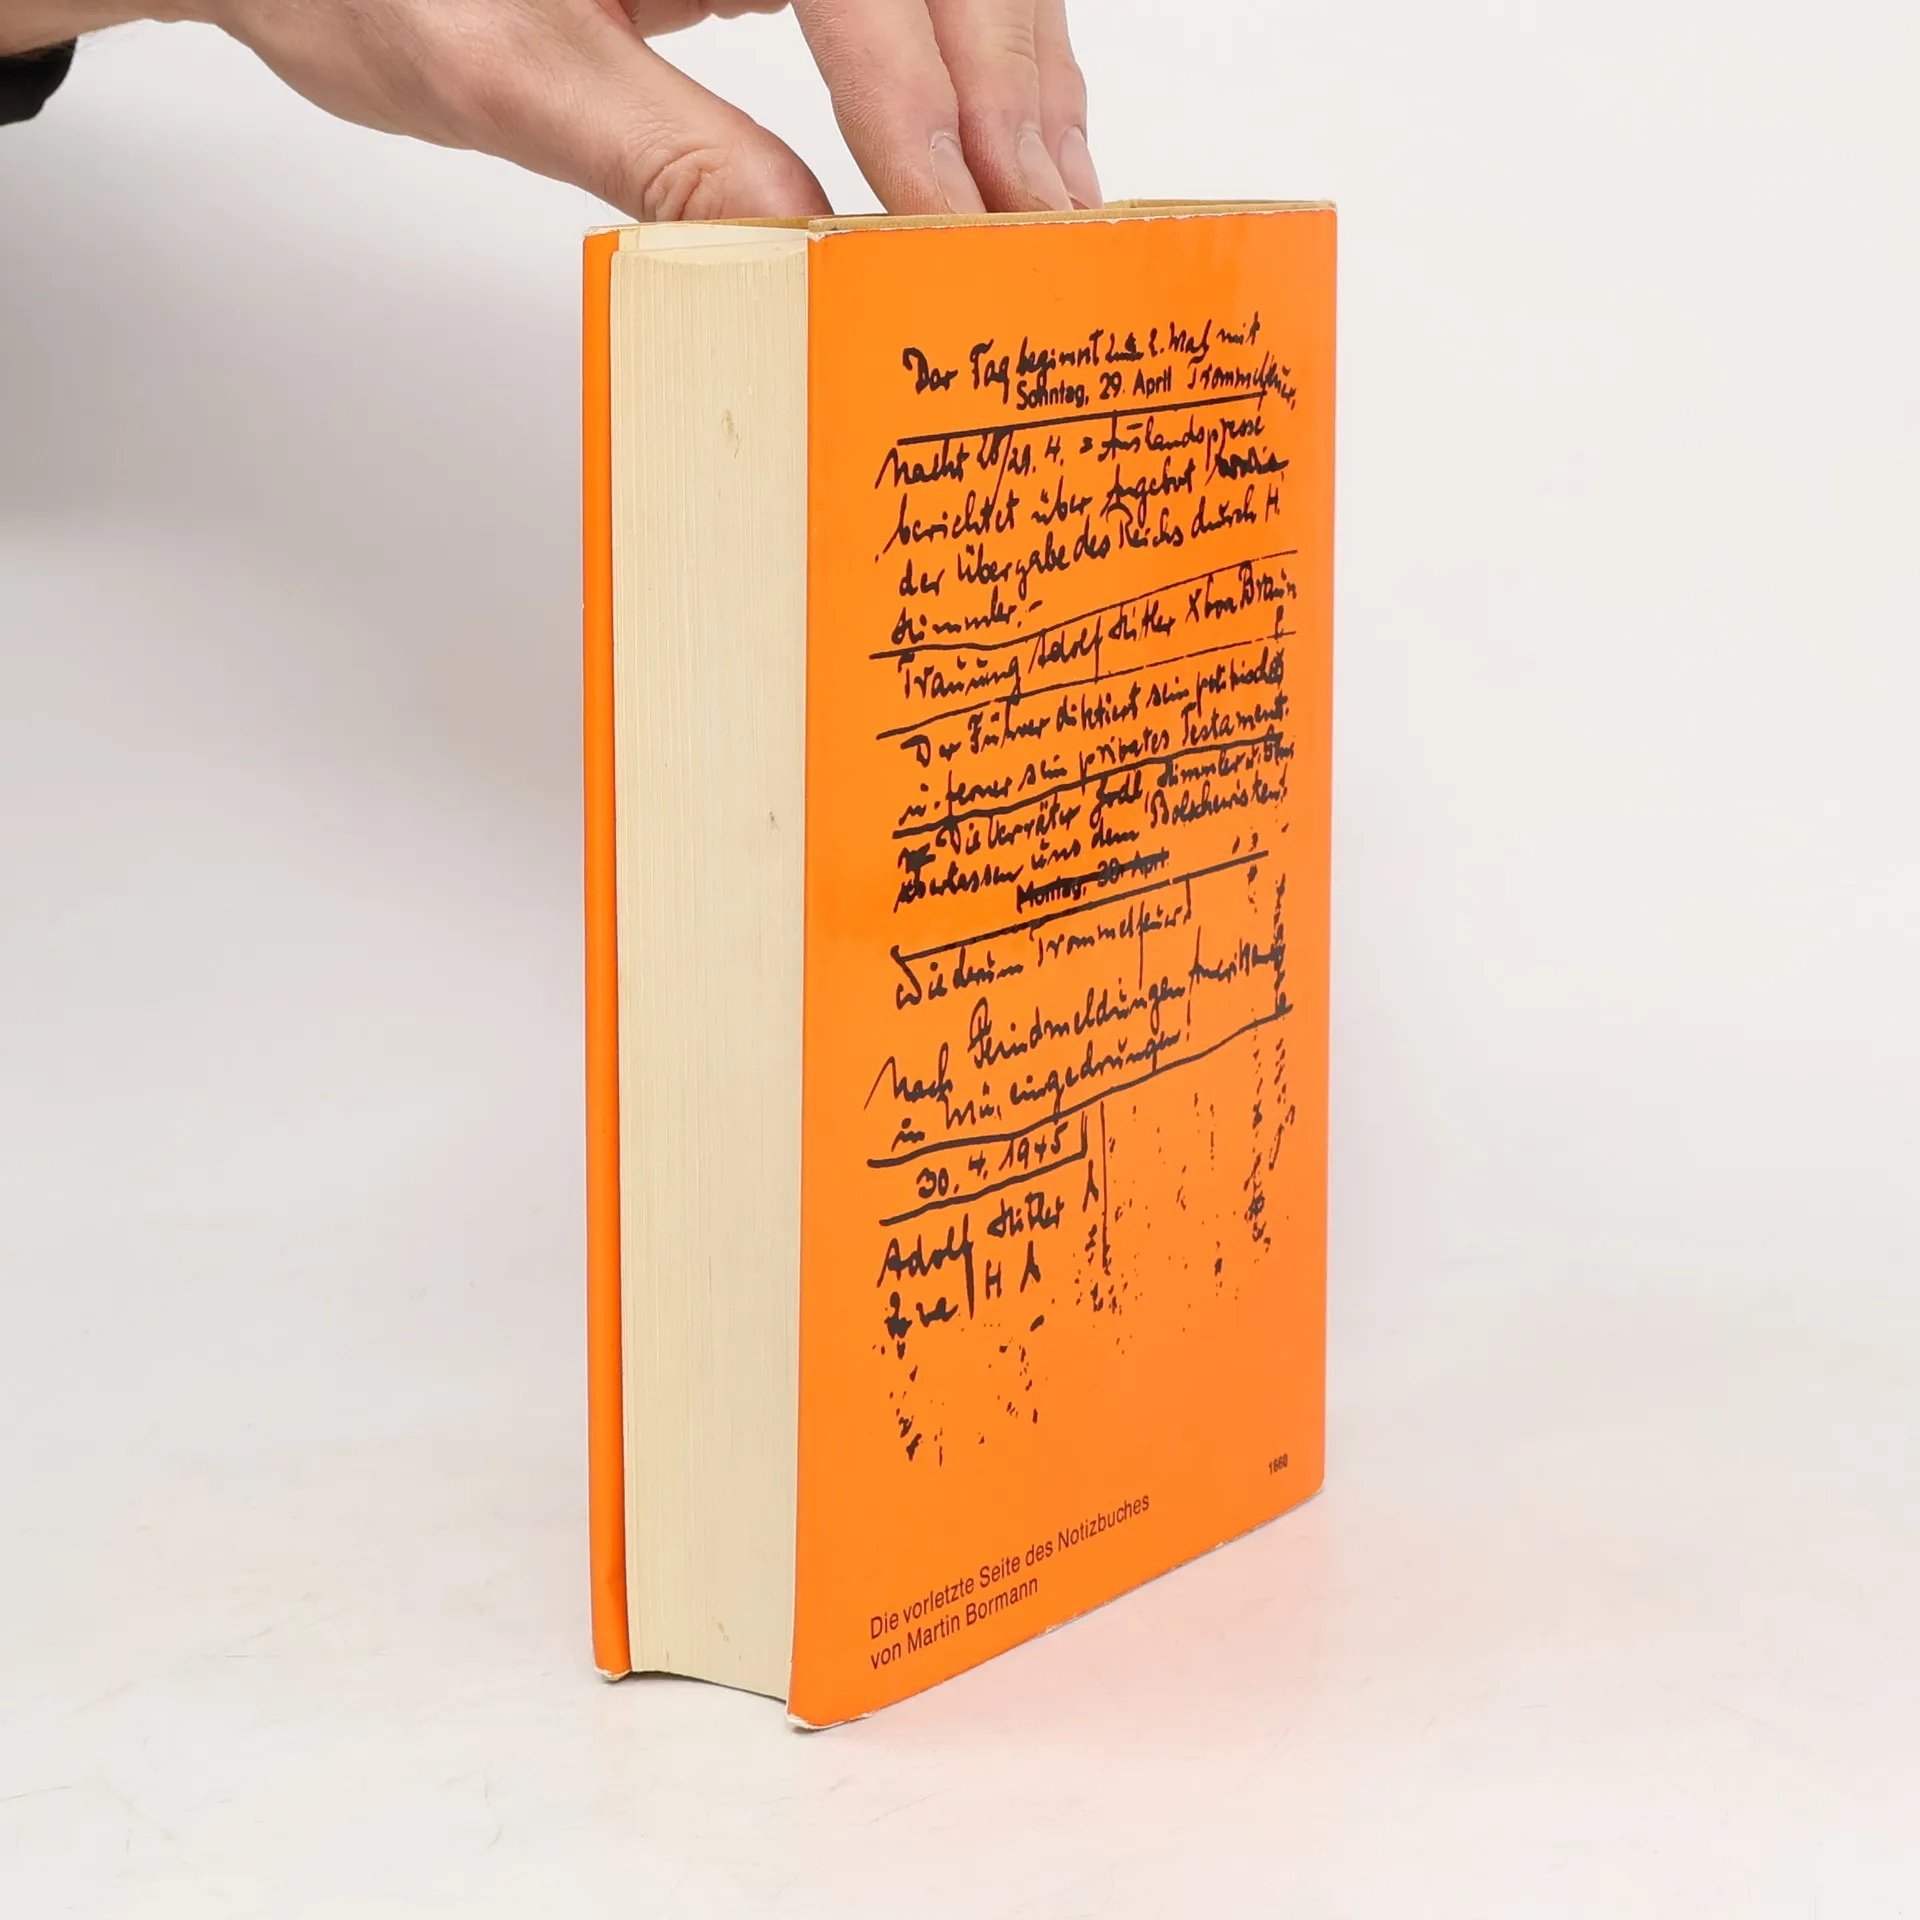 Der Tag beginnt zum 2. Mal mit
Sonntag, 29. April Trommelfeuer,
Nacht 28/29. 4. = Auslandspresse
berichtet über Angebot
der Übergabe des Reichs durch H.
Himmler.-
Trauung Adolf Hitler X Eva Braun
Der Führer diktiert sein politisches
u. ferner sein privates Testament.
Die Verräter Jodl Himmler u.
überlassen uns dem Bolschewisten!
Montag, 30. April
Wiederum Trommelfeuer!
Nach Feindmeldungen Amerikaner
in Mü. eingedrungen!
30. 4. 1945
Adolf Hitler
Eva H
1860
Die vorletzte Seite des Notizbuches
von Martin Bormann